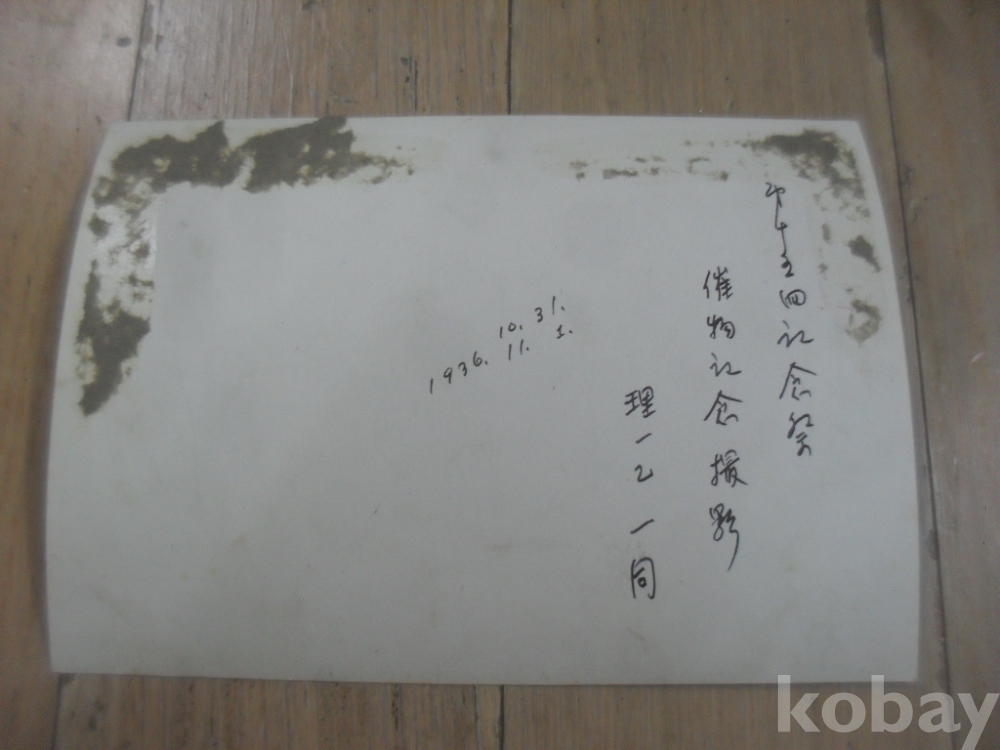 第十五回記念祭
催物記念撮影
理一乙一同
10. 31.
1936. 11. 1.
kobay